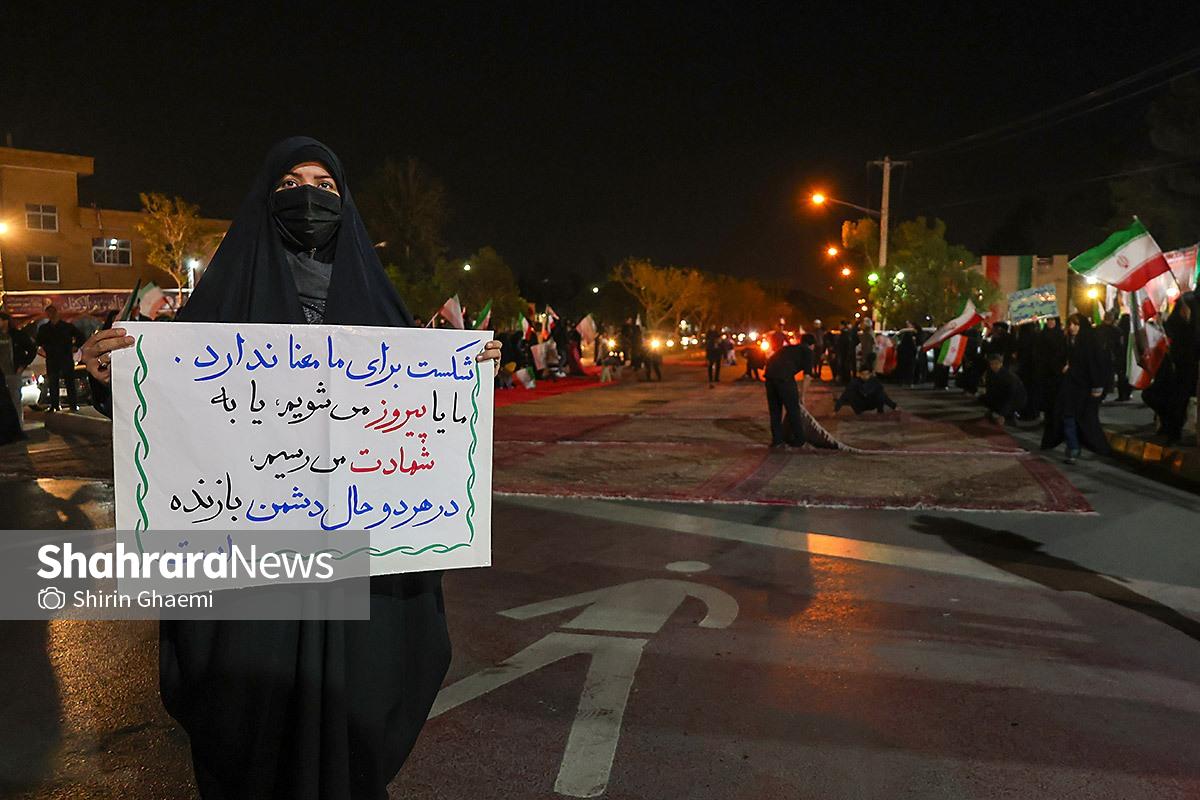 شکست برای ما معنا ندارد.
ما یا پیروز می‌شویم، یا به
شهادت می‌رسیم،
در هر دو حال دشمن بازنده
است
ShahraraNews
Shirin Ghaemi